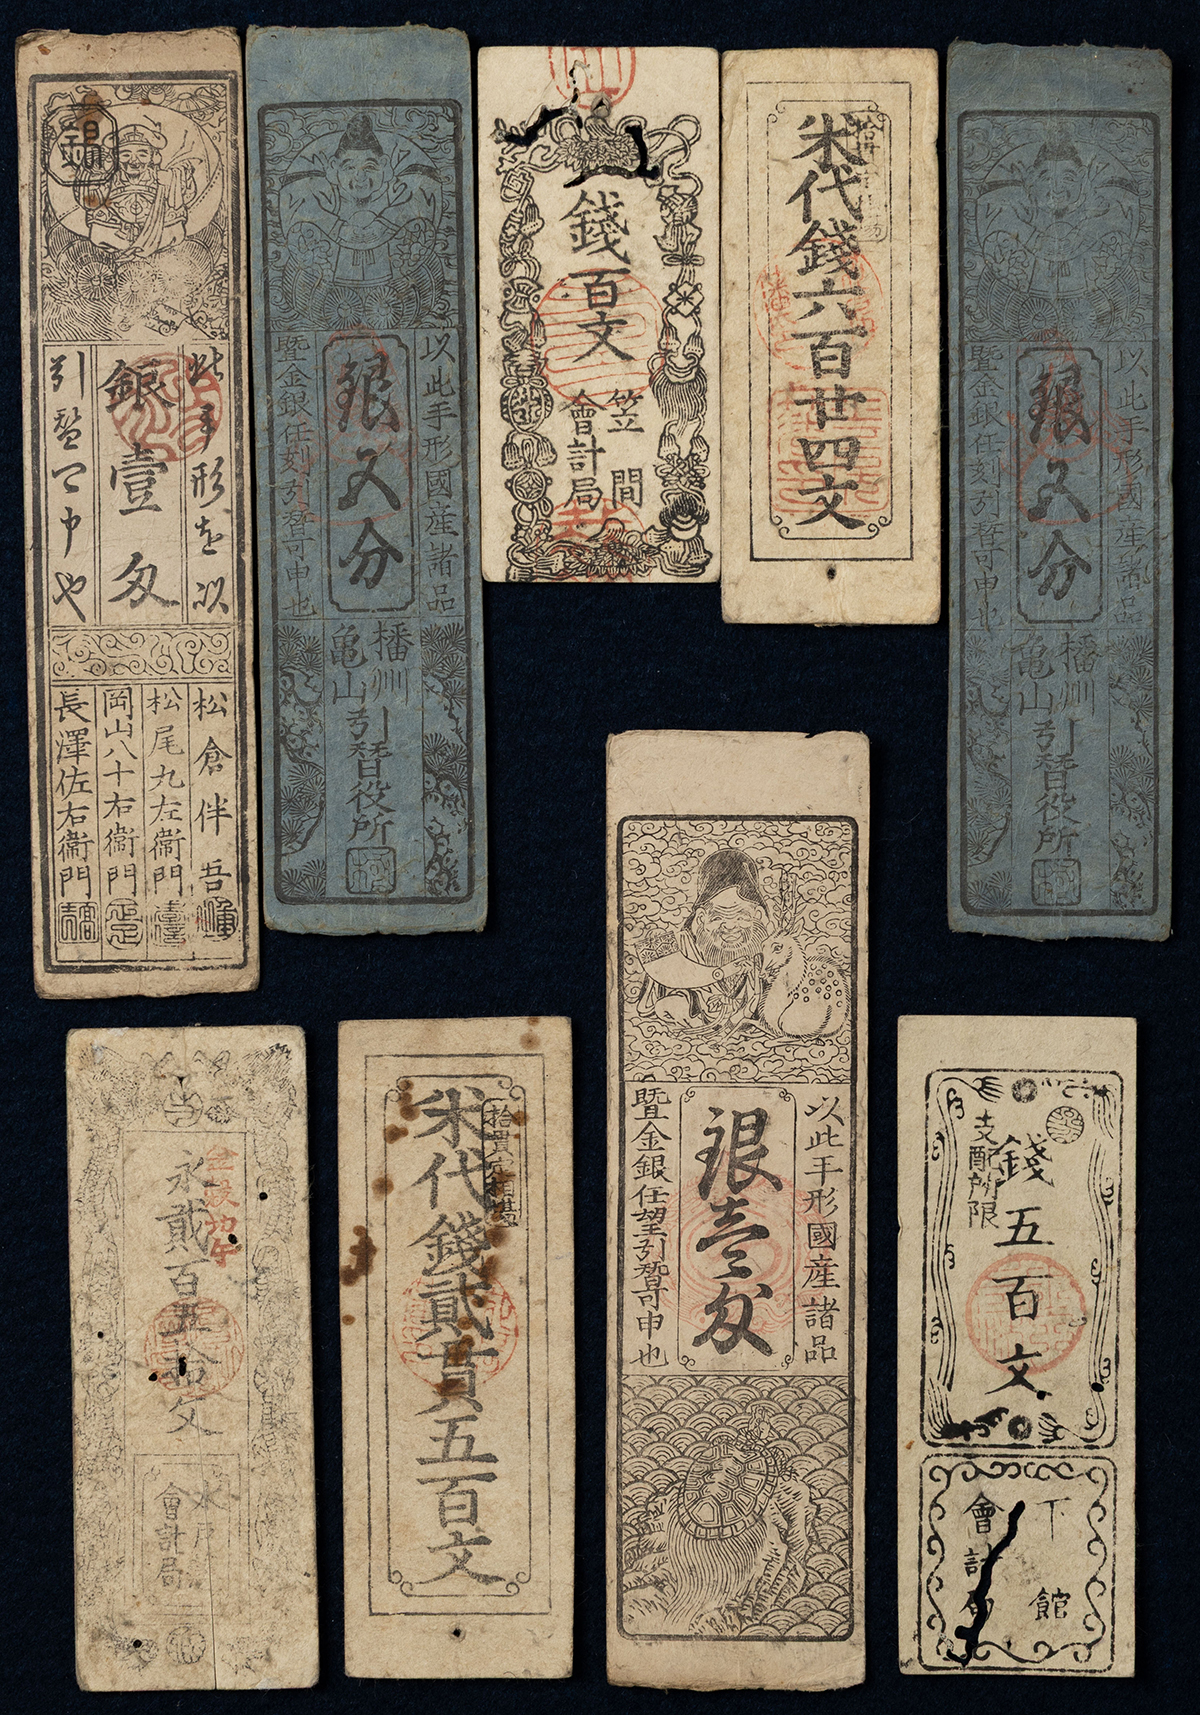 錫
此手形を以
銀壹匁
引替可申也
松倉伴吾
松尾九左衞門
岡山八十右衞門
長澤佐右衞門
以此手形國産諸品
銀五分
暨金銀任刻引替可申也
播州
亀山
引替役所
錢百文
笠間
會計局
米代錢六百廿四文
以此手形國産諸品
銀五分
暨金銀任刻引替可申也
播州
亀山
引替役所
永貳百五拾文
水戸
會計局
米代錢貳貫五百文
以此手形國産諸品
銀壹匁
暨金銀任望引替可申也
錢五百文
支配所限
下館
會計局